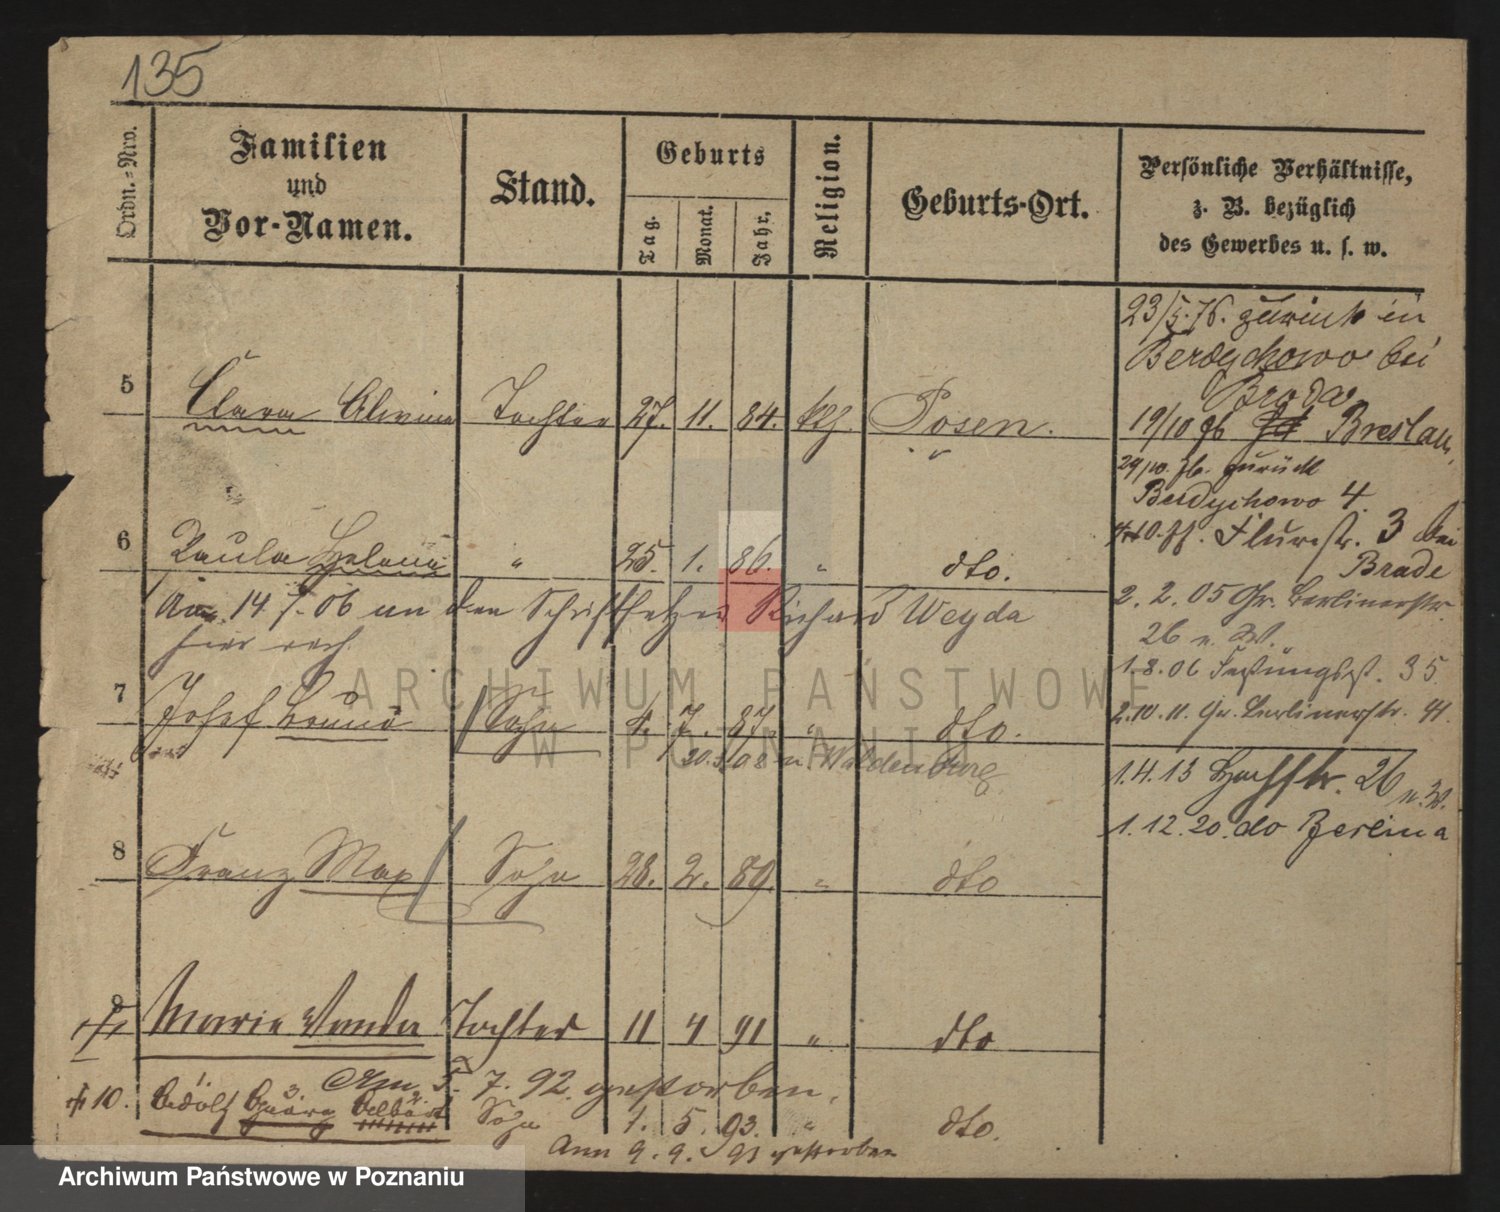 135
Ordn.-Nro.
Familien
und
Vor-Namen.
Stand.
Geburts
Tag.
Monat.
Jahr.
Religion.
Geburts-Ort.
Persönliche Verhältnisse,
z. B. bezüglich
des Gewerbes u. s. w.
23/5.76. zurück in
Berdychowo bei
Broda
5 Clara Alwine Tochter 27. 11. 84. kth. Posen.
19/10 96 Breslau,
zurück
Berdychowo 4.
6 Paula Helene " 25. 1. 86. " dto.
Flurstr. 3 bei
Brade
Am 14 7. 06 an den Schriftsetzer Richard Weyda
hier verh.
2. 2. 05 Gr. Berlinerstr.
26 n. W.
1.8.06 Festungsst. 35.
7 Josef Bruno Sohn 4. 7. 87. " dto.
2.10.11. Gr. Berlinerstr. 41.
08 n. Waldenburg
1.4.13 26 n. W.
1.12.20. do Berlina
8 Franz Max Sohn 28. 2. 89. " dto
9 Marie Wanda Tochter 11 4 91 " dto
Am 5. 7. 92 gestorben.
10. Adolf Sohn 1. 5. 93. " dto.
Am 9. 9. 93 gestorben
ARCHIWUM PAŃSTWOWE
W POZNANIU
Archiwum Państwowe w Poznaniu